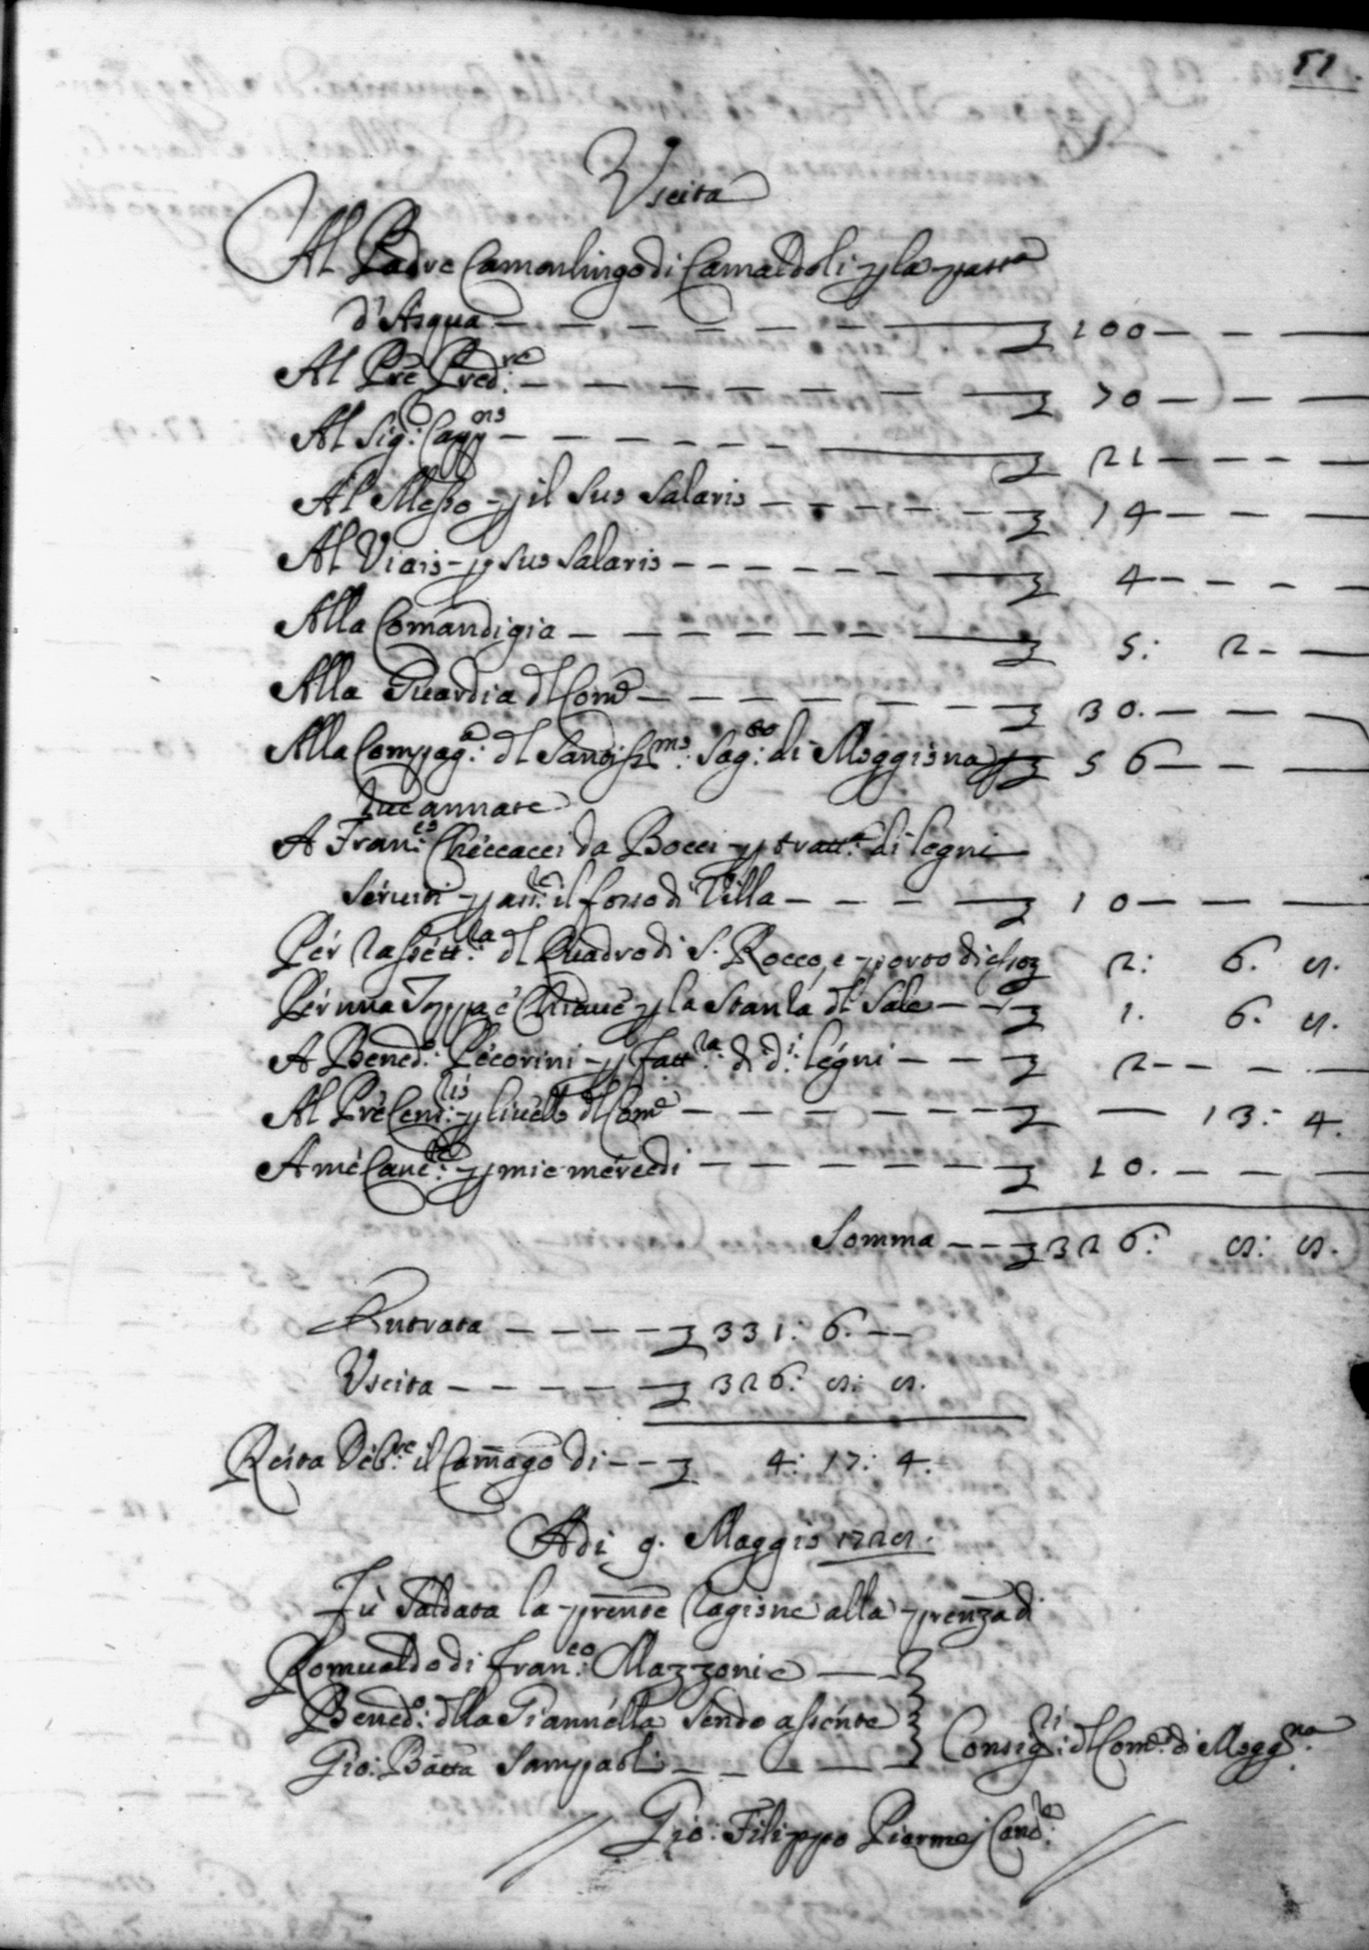 51
Vscita
Al Padre Camarlingo di Camaldoli p la
d'Acqua — 100 — —
Al Prẽ Pred:re — 70 — —
Al Sig: Capp:no — 21 — —
Al Messo p il suo salario — 14 — —
Al Viaio p suo salario — 4 — —
Alla Comandigia — 5: 2 —
Alla Guardia dl Com:e — 30. — —
Alla Compag:a dl Santiss:mo Sag:to di Moggiona p 56 — —
due annate
A Fran:co Checcacci da Bocci p tratt:a di legni
serviti p il fosso di Villa — 10 — —
Per rassett:ra dl Quadro di S. Rocco, e porto di esso 2: 6. 8.
Per una Toppa e Chiave p la Stanza dl Sale — 1. 6. 8.
A Bened:o Pecorini p fatt:ra di d:i legni — 2 — —
Al Prẽ p livello dl Com:e — 13: 4.
A me Canc:re p mie mercedi — 10. — —
Somma — 326: 8: 8.
Entrata — 331: 6. —
Vscita — 326: 8: 8.
Resta Deb:re il Camãgo di — 4: 17: 4.
Adi 9. Maggio 1728.
Fù saldata la p̃nte ragione alla p̃enza di
Romualdo di Fran:co Mazzoni e —
Bened:o dlla Giannella sendo assente
Gio: Bãtta Sampaoli —
Consig:ri dl Com:e di Mogg:na
Gio: Filippo Piermej Canc:re